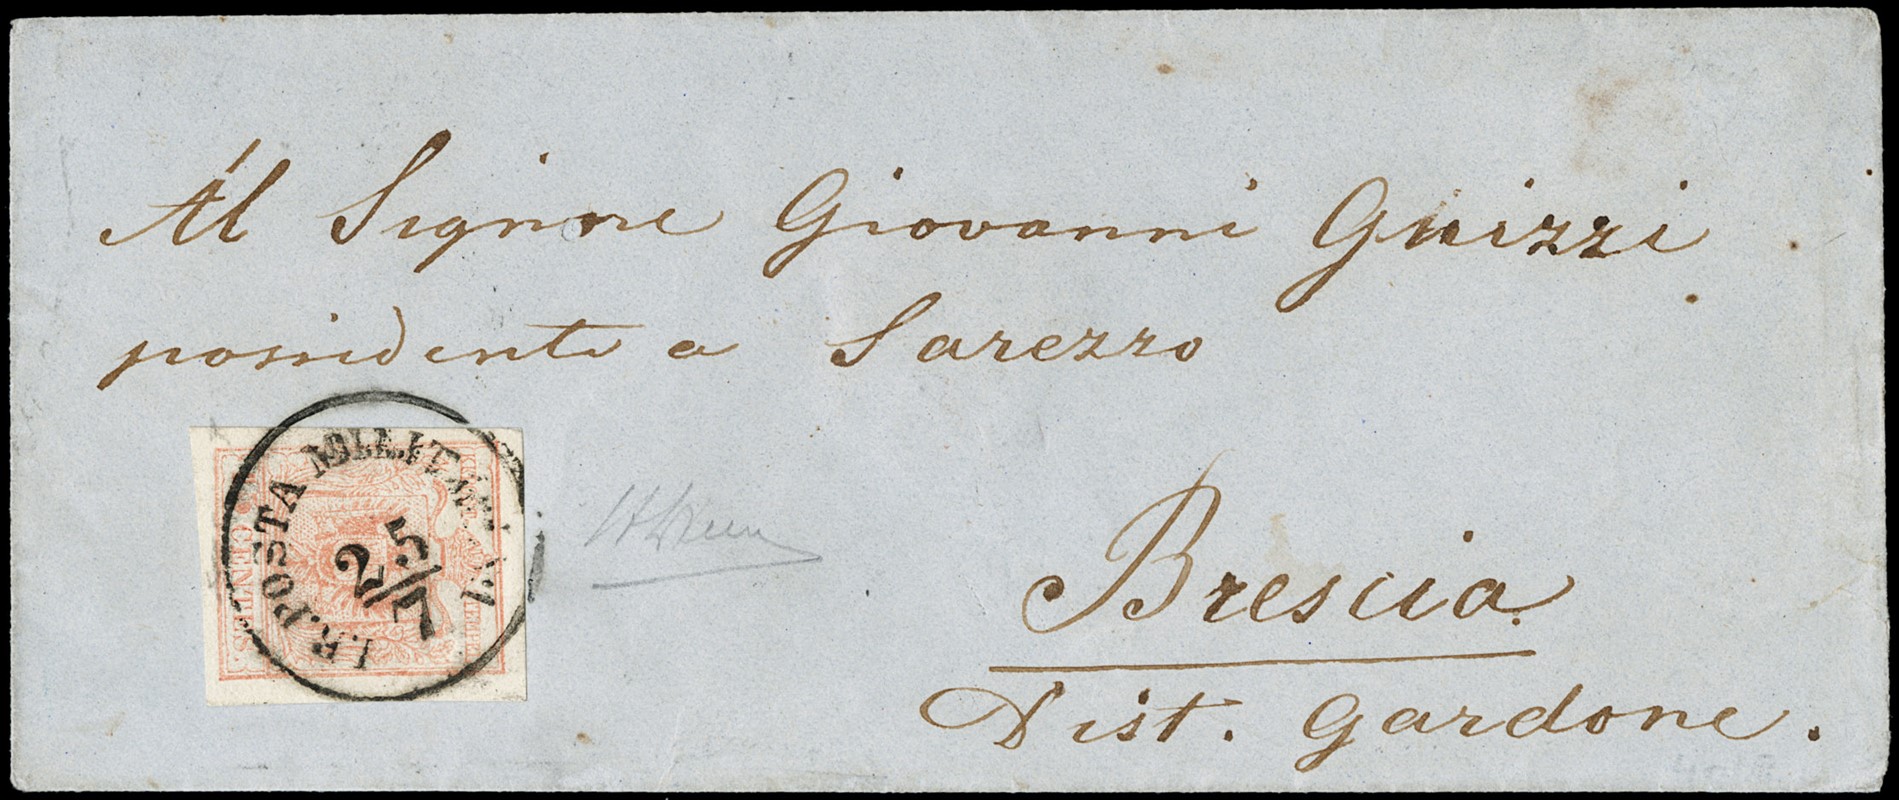 Al Signore Giovanni Guizzi
possidente a Sarezzo
Brescia
Dist. Gardone.
I.R. POSTA MILITARE VI
25/7
CENTES.